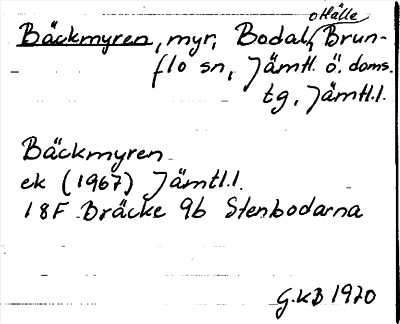 Bäckmyren, myr, Bodal, o Hälle Brun-
flo sn, Jämtl. ö. doms.
tg, Jämtl. l.
Bäckmyren
ek (1967) Jämtl. l.
18F Bräcke 9b Stenbodarna
G.KB 1970